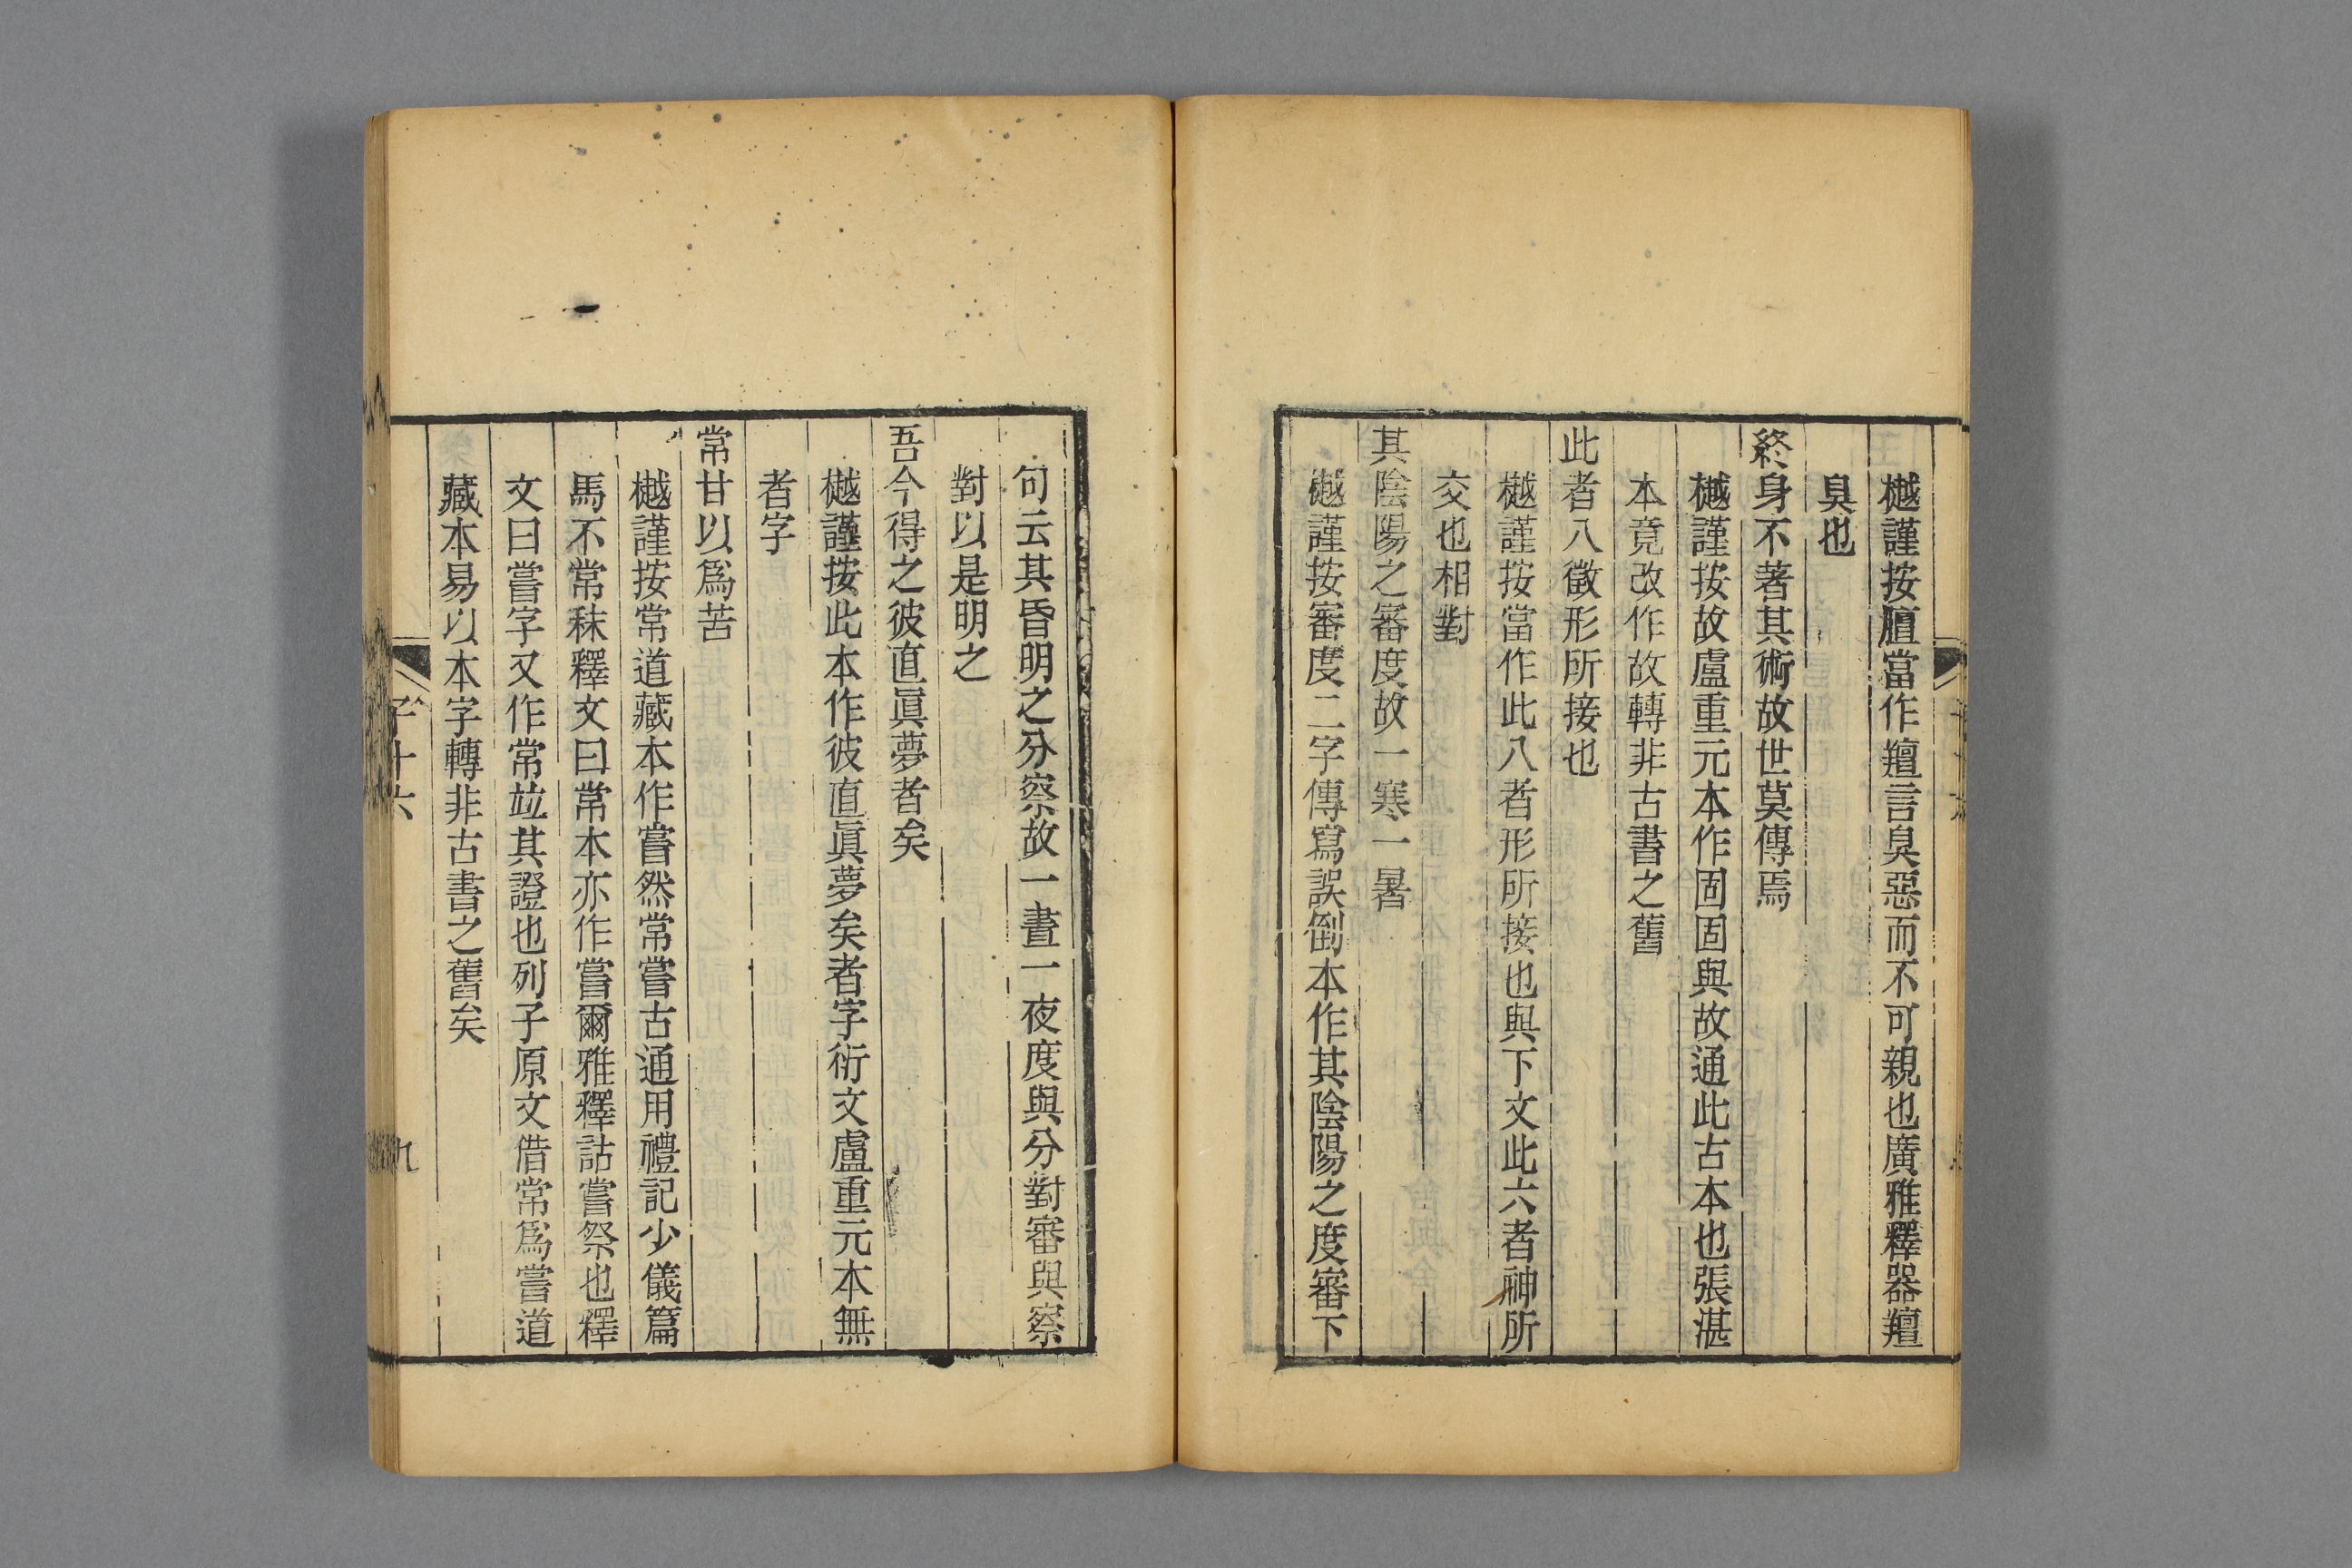 樾謹按膻當作羶言臭惡而不可親也廣雅釋器羶
臭也
終身不著其術故世莫傳焉
樾謹按故盧重元本作固固與故通此古本也張湛
本竟改作故轉非古書之舊
此者八徵形所接也
樾謹按當作此八者形所接也與下文此六者神所
交也相對
其陰陽之審度故一寒一暑
樾謹按審度二字傳寫誤倒本作其陰陽之度審下
句云其昏明之分察故一晝一夜度與分對審與察
對以是明之
吾今得之彼直眞夢者矣
樾謹按此本作彼直眞夢矣者字衍文盧重元本無
者字
常甘以爲苦
樾謹按常道藏本作嘗然常嘗古通用禮記少儀篇
馬不常秣釋文曰常本亦作嘗爾雅釋詁嘗祭也釋
文曰嘗字又作常竝其證也列子原文借常爲嘗道
藏本易以本字轉非古書之舊矣
子十六
九